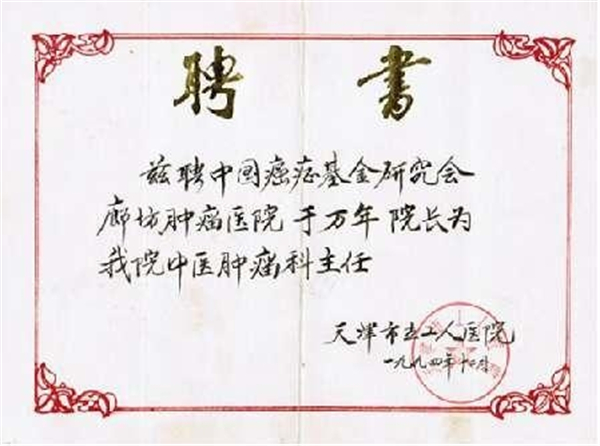 聘书
兹聘中国癌症基金研究会
廊坊肿瘤医院 于万年 院长为
我院中医肿瘤科主任
天津市立工人医院
一九九四年十月